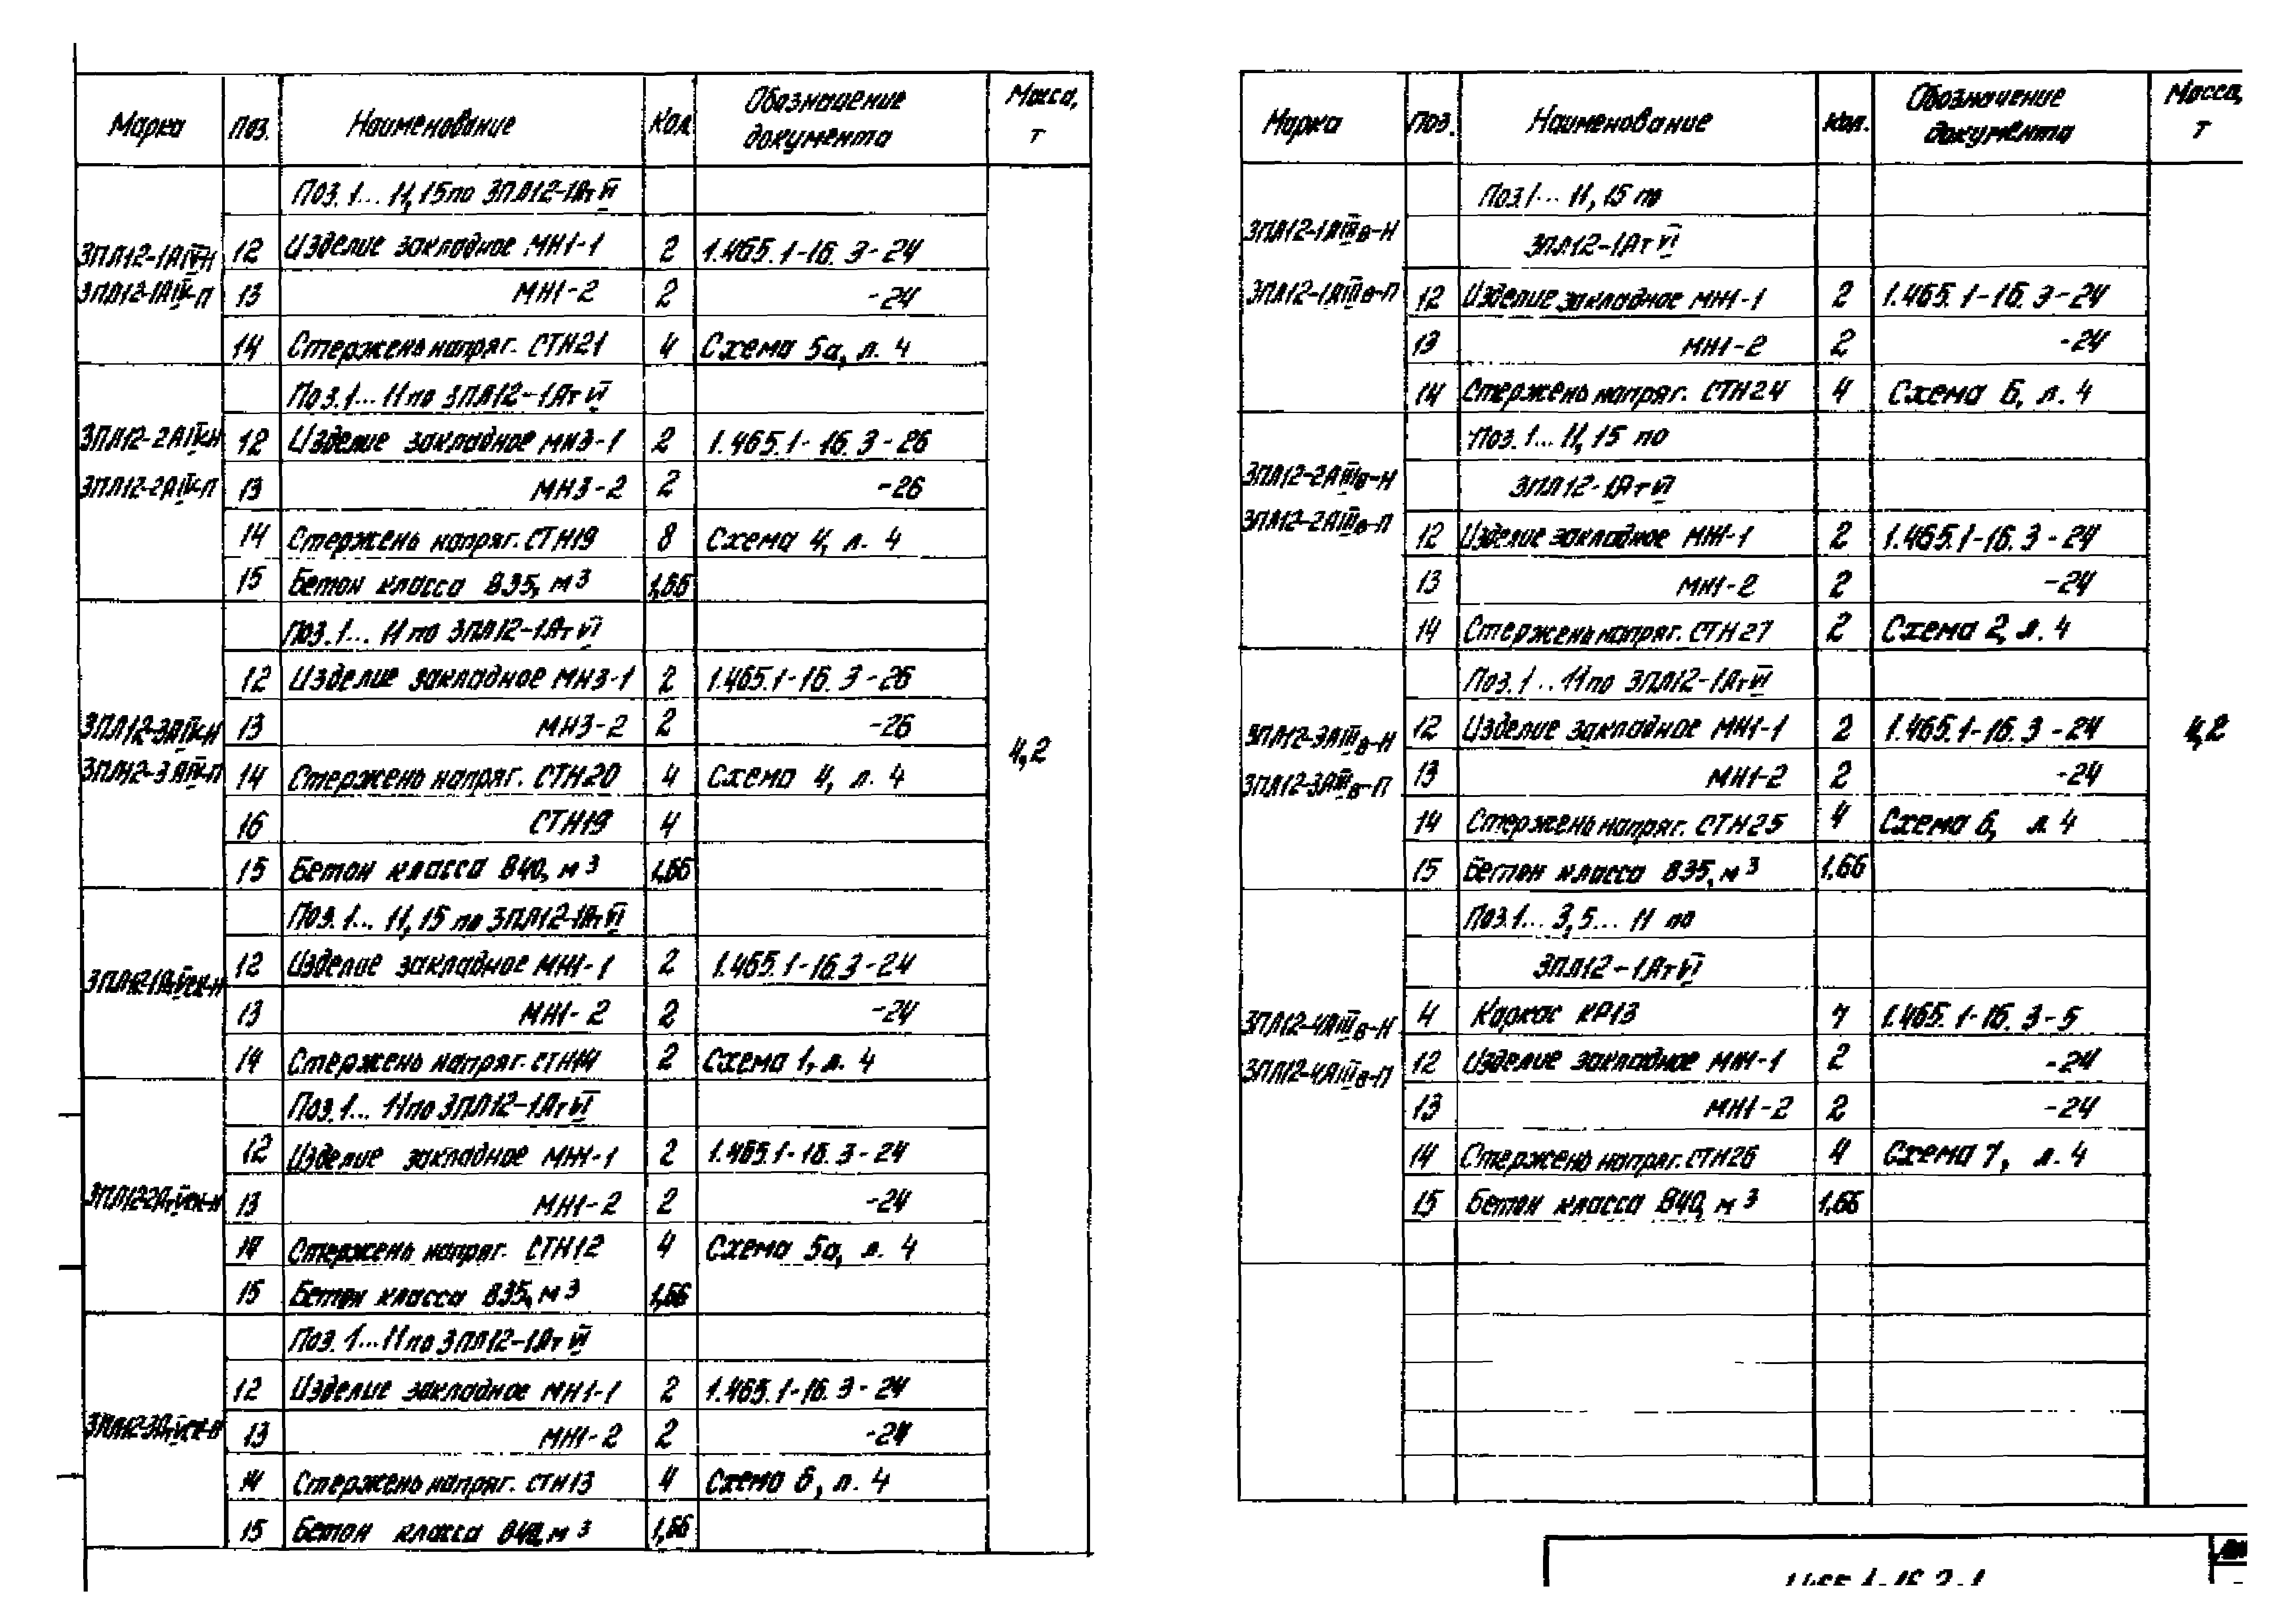 Марка Поз. Наименование Кол. Обозначение документа Масса, т
Поз. 1... 11, 15 по 3ПЛ12-1АтVI
3ПЛ12-1АIV-Н 12 Изделие закладное МН1-1 2 1.465.1-16.3-24
3ПЛ12-1АIV-П 13 МН1-2 2 -24
14 Стержень напряг. СТН21 4 Схема 5а, л. 4
Поз. 1... 11 по 3ПЛ12-1АтVI
3ПЛ12-2АIV-Н 12 Изделие закладное МН3-1 2 1.465.1-16.3-26
3ПЛ12-2АIV-П 13 МН3-2 2 -26
14 Стержень напряг. СТН19 8 Схема 4, л. 4
15 Бетон класса В35, м3 1,66
Поз. 1... 11 по 3ПЛ12-1АтVI
12 Изделие закладное МН3-1 2 1.465.1-16.3-26
3ПЛ12-3АIV-Н 13 МН3-2 2 -26
4,2
3ПЛ12-3АIV-П 14 Стержень напряг. СТН20 4 Схема 4, л. 4
16 СТН19 4
15 Бетон класса В40, м3 1,66
Поз. 1... 11, 15 по 3ПЛ12-1АтVI
3ПЛ12-1АтVск-Н 12 Изделие закладное МН1-1 2 1.465.1-16.3-24
13 МН1-2 2 -24
14 Стержень напряг. СТН14 2 Схема 1, л. 4
Поз. 1... 11 по 3ПЛ12-1АтVI
12 Изделие закладное МН1-1 2 1.465.1-16.3-24
3ПЛ12-2АтVск-Н 13 МН1-2 2 -24
14 Стержень напряг. СТН12 4 Схема 5а, л. 4
15 Бетон класса В35, м3 1,66
Поз. 1... 11 по 3ПЛ12-1АтVI
12 Изделие закладное МН1-1 2 1.465.1-16.3-24
3ПЛ12-3АтVск-Н 13 МН1-2 2 -24
14 Стержень напряг. СТН13 4 Схема 6, л. 4
15 Бетон класса В40, м3 1,66
Марка Поз. Наименование Кол. Обозначение документа Масса, т
Поз. 1... 11, 15 по
3ПЛ12-1АIIIв-Н 3ПЛ12-1АтVI
3ПЛ12-1АIIIв-П 12 Изделие закладное МН1-1 2 1.465.1-16.3-24
13 МН1-2 2 -24
14 Стержень напряг. СТН24 4 Схема 6, л. 4
Поз. 1... 11, 15 по
3ПЛ12-2АIIIв-Н 3ПЛ12-1АтVI
3ПЛ12-2АIIIв-П 12 Изделие закладное МН1-1 2 1.465.1-16.3-24
13 МН1-2 2 -24
14 Стержень напряг. СТН27 2 Схема 2, л. 4
Поз. 1... 11 по 3ПЛ12-1АтVI
3ПЛ12-3АIIIв-Н 12 Изделие закладное МН1-1 2 1.465.1-16.3-24 4,2
3ПЛ12-3АIIIв-П 13 МН1-2 2 -24
14 Стержень напряг. СТН25 4 Схема 6, л. 4
15 Бетон класса В35, м3 1,66
Поз. 1... 3, 5... 11 по
3ПЛ12-1АтVI
3ПЛ12-4АIIIв-Н 4 Каркас КР13 7 1.465.1-16.3-5
3ПЛ12-4АIIIв-П 12 Изделие закладное МН1-1 2 -24
13 МН1-2 2 -24
14 Стержень напряг. СТН26 4 Схема 7, л. 4
15 Бетон класса В40, м3 1,66
1.465.1-16.3-1